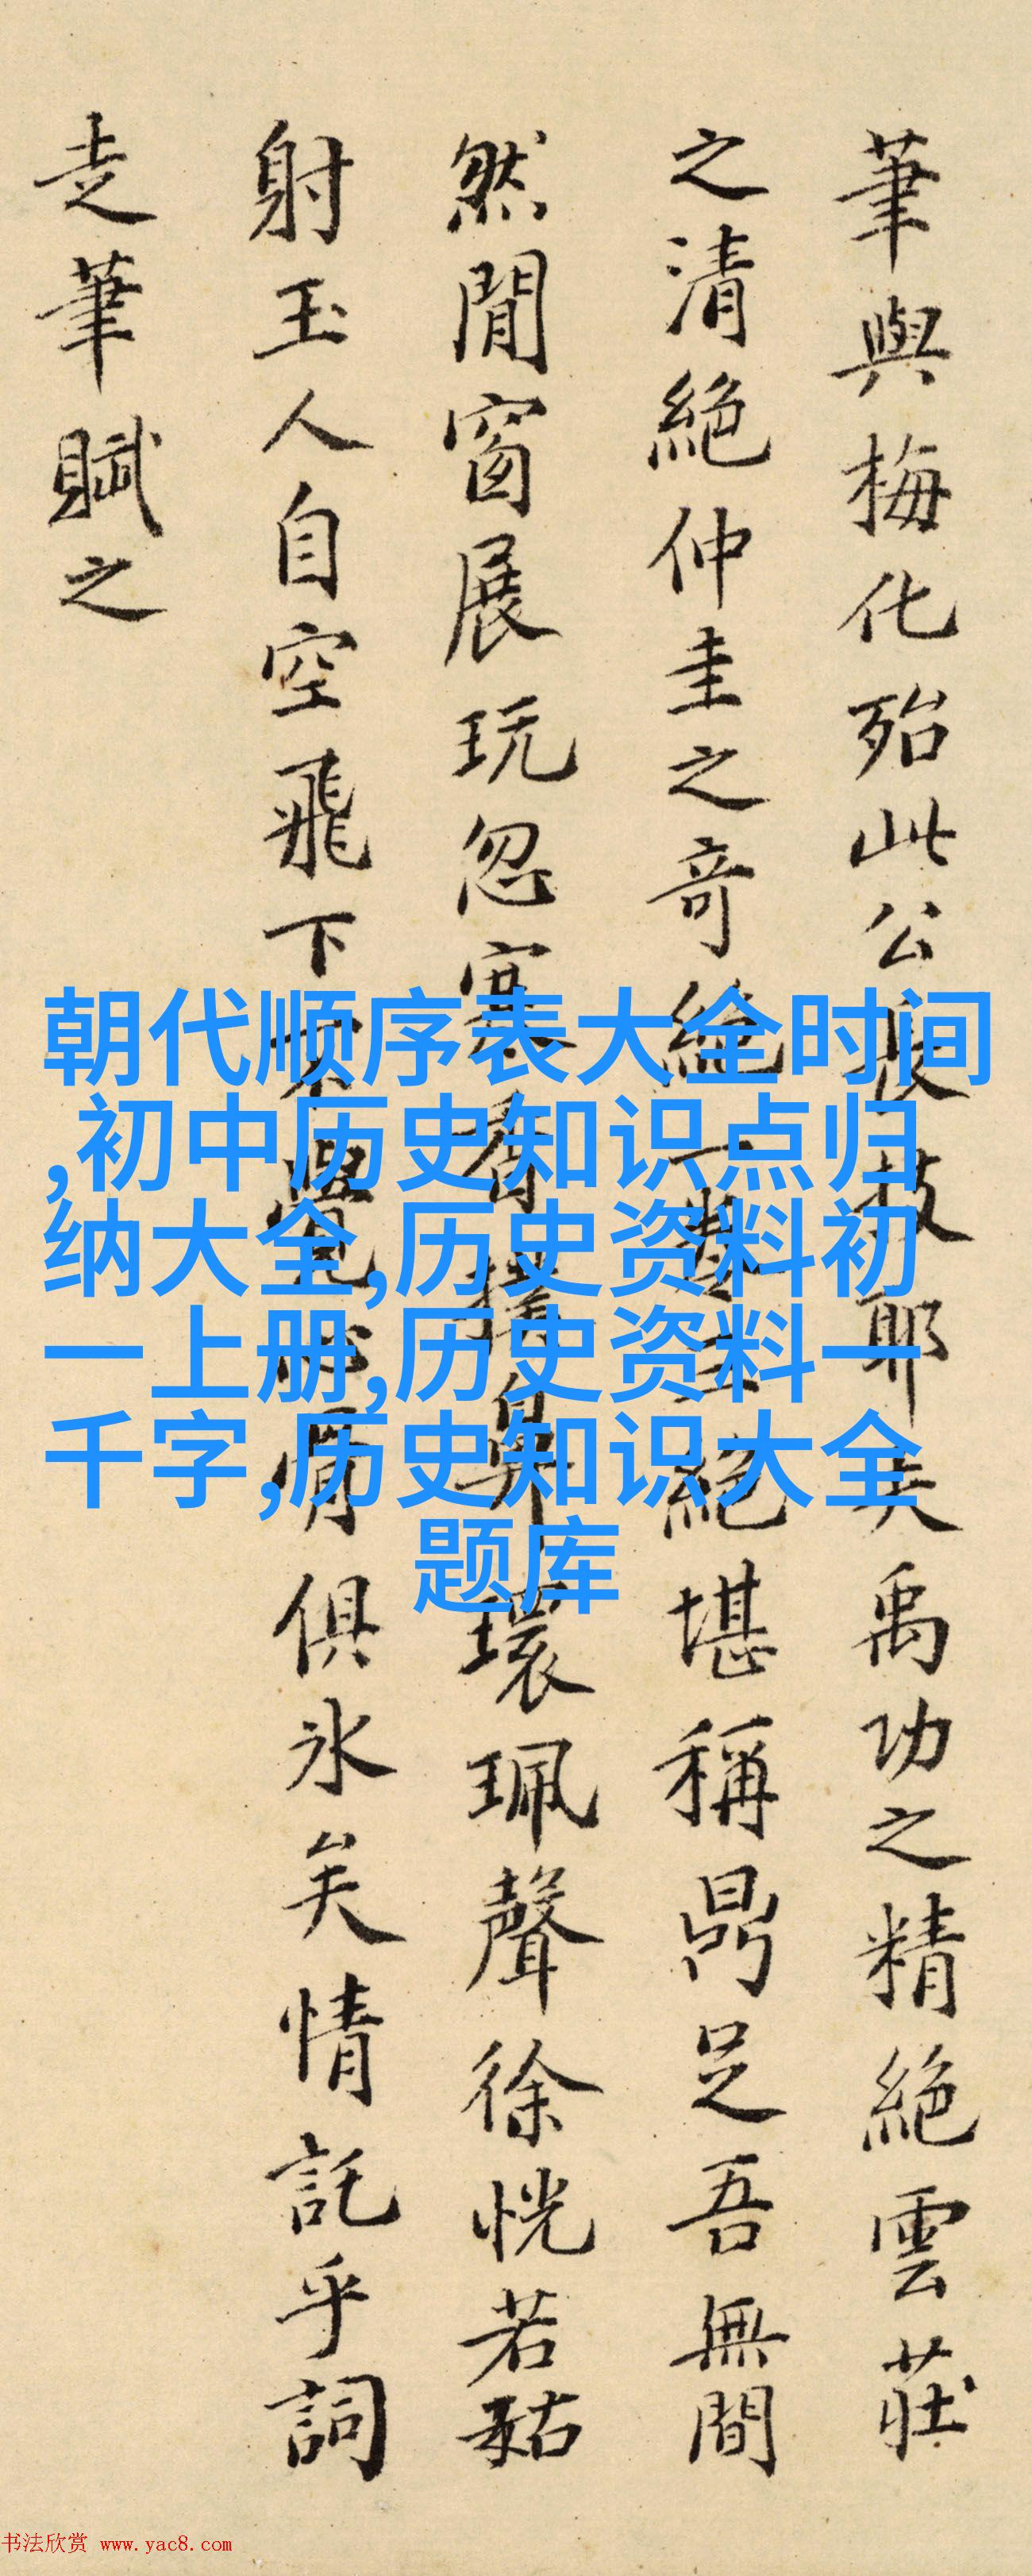 筆與梅化殆此公長技耶矣禹功之精絕雲莊
之清絕仲圭之奇絕一絕堪稱鼎足吾無間
然閒窗展玩忽寒香撲鼻環珮聲徐恍若姑
射玉人自空飛下不覺心骨俱冰矣情託乎詞
走筆賦之
朝代顺序表大全时间
,初中历史知识点归
纳大全,历史资料初
一上册,历史资料一
千字,历史知识大全
题库
书法欣赏 www.yac8.com